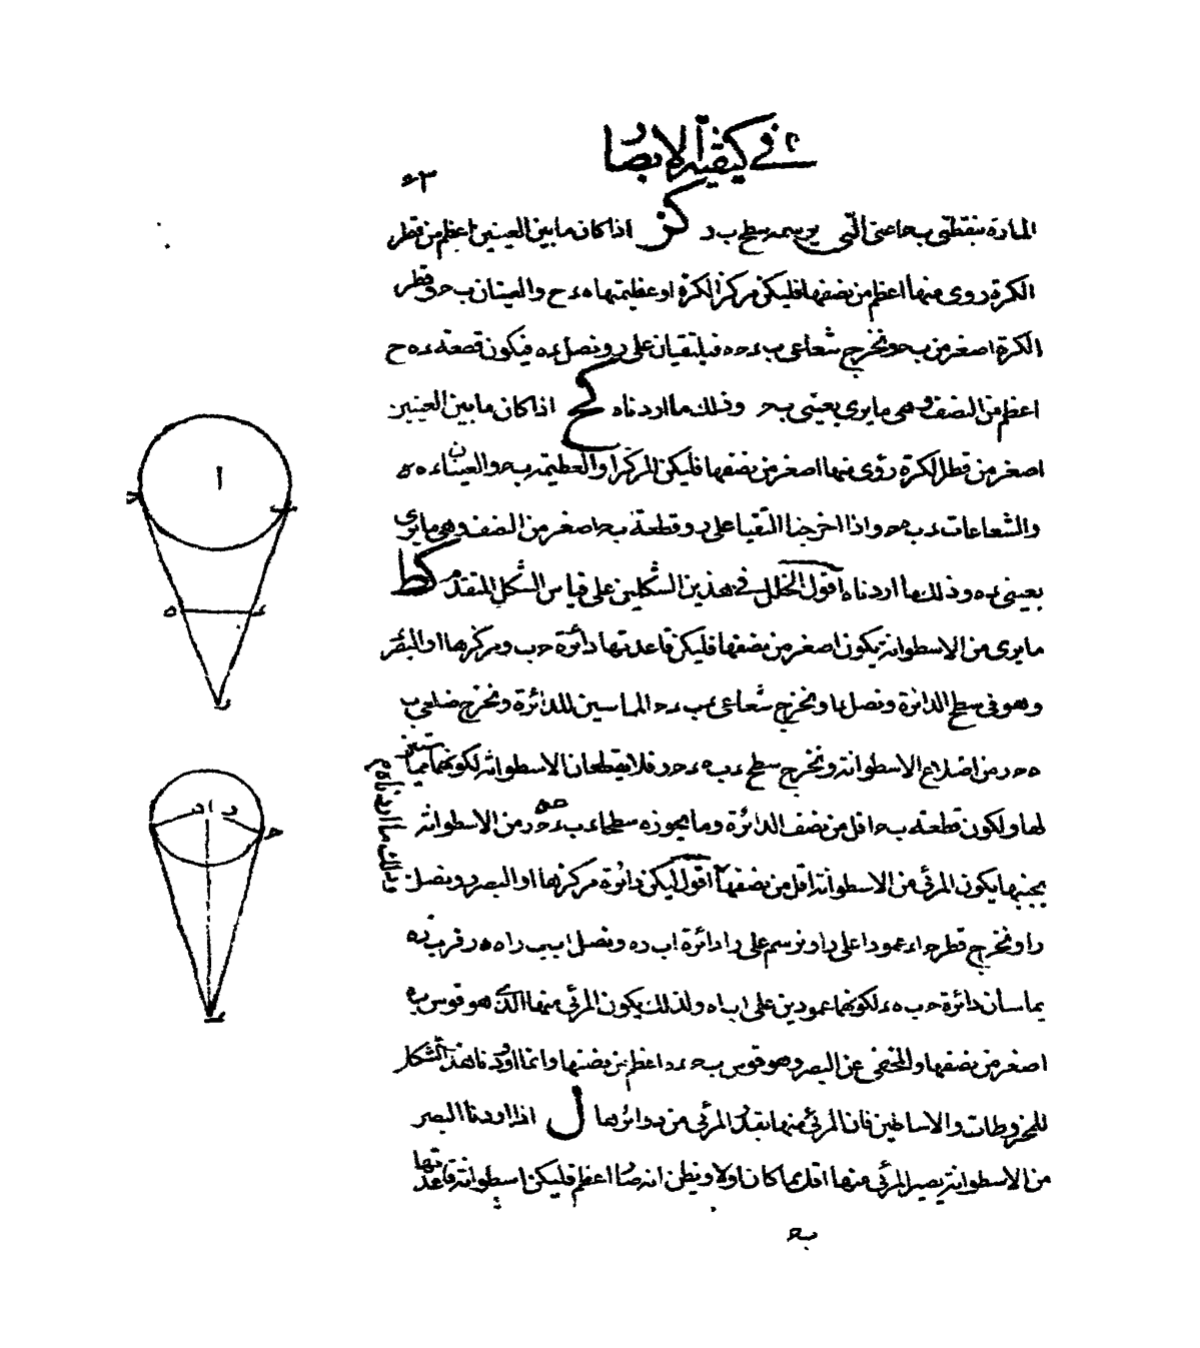 في كيفية الابصار
٤٣
المارة بنقطتي ب ح اعني التي يرسمه سطح ب د كز اذا كان ما بين العينين اعظم من قطر
الكرة روى منها اعظم من نصفها فليكن مركز الكرة ا وعظيمتها ه ء ح والعينان ب ح وقطر
الكرة اصغر من ب ح ونخرج شعاعي ب ء ح ه فيلتقيان على ر ونصل ء ه فيكون قطعة ء ه ح
اعظم من النصف وهي ما يرى بعيني ب ح وذلك ما اردناه كح اذا كان ما بين العينين
اصغر من قطر الكرة رؤى منها اصغر من نصفها فليكن المركز ا والعظيمة ب ح والعينان ء ه
والشعاعات ء ب ه ح واذا اخرجنا التقيا على ر وقطعة ب ح اصغر من النصف وهي ما يرى
بعيني ء ه وذلك ما اردناه اقول الخلل في هذين الشكلين على قياس الشكل المتقدم كط
ما يرى من الاسطوانة يكون اصغر من نصفها فليكن قاعدتها دائرة ح ب ومركزها ا والبصر ء
وهو في سطح الدائرة ونصل ء ا ونخرج شعاعي ء ب ء ح المماسين للدائرة ونخرج ضلعي ب
ه ح ر من اضلاع الاسطوانة ونخرج سطحي ء ب ه ء ح ر فلا يقطعان الاسطوانة لكونهما مماستين
لها ولكون قطعة ب ح اقل من نصف الدائرة وما يجوزه سطحا ء ب ه ء ح ر من الاسطوانة
بجنبها يكون المرئي من الاسطوانة اقل من نصفها اقول ليكن دائرة مركزها ا والبصر ر ونصل
ر ا ونخرج قطر ح ا ء عمودا على ر ا ونرسم على ر ا دائرة ا ب ر ه ونصل ا ب ب ر ا ه ه ر ف ر ب ر ه
يماسان دائرة ح ب ه ء لكونهما عمودين على ا ب ا ه ولذلك يكون المرئي منها الذي هو قوس ب ه
اصغر من نصفها والمخفي عن البصر وهو قوس ب ح ء ه اعظم من نصفها وانما اوردنا هذا الشكل
للمخروطات والاساطين فان المرئي منها بقدر المرئي من دوائرها ل اذا ادنينا البصر
من الاسطوانة يصير المرئي منها اقل مما كان اولا ويظن انه صار اعظم فليكن اسطوانة قاعدتها
ب ح
وذلك ما اردناه م
ا
ح
ب
ه
ء
ر
ا
د
ح